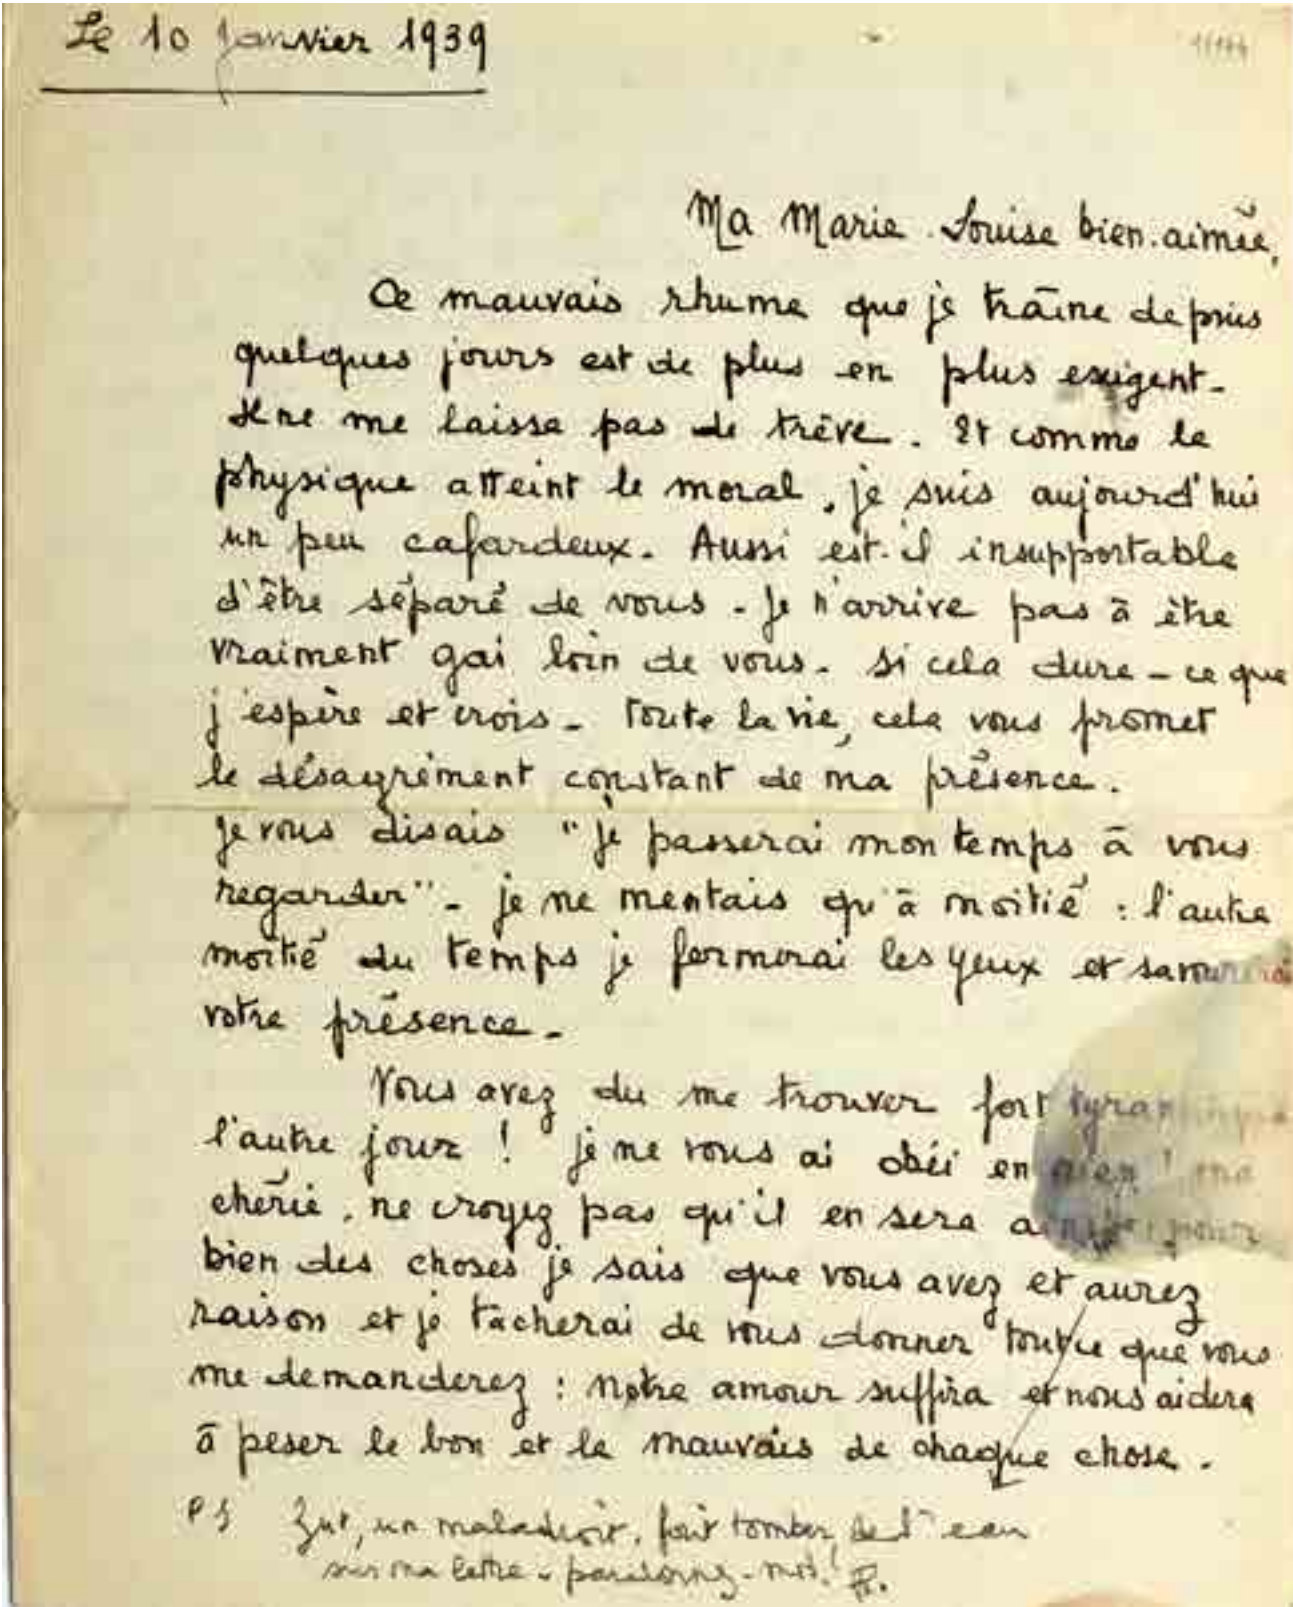 Le 10 Janvier 1939
Ma Marie-Louise bien-aimée,
Ce mauvais rhume que je traîne depuis
quelques jours est de plus en plus exigent-
Il ne me laisse pas de trève. Et comme le
physique atteint le moral, je suis aujourd'hui
un peu cafardeux. Aussi est-il insupportable
d'être séparé de vous - Je n'arrive pas à être
vraiment gai loin de vous. Si cela dure - ce que
j'espère et crois - toute la vie, cela vous promet
le désagrément constant de ma présence.
Je vous disais "je passerai mon temps à vous
regarder" - je ne mentais qu'à moitié : l'autre
moitié du temps je fermerai les yeux et savourerai
votre présence -
Vous avez du me trouver fort tyrannique
l'autre jour ! je ne vous ai obéi en rien ! ma
chérie, ne croyez pas qu'il en sera ainsi : pour
bien des choses je sais que vous avez et aurez
raison et je tacherai de vous donner tout ce que vous
me demanderez : notre amour suffira et nous aidera
à peser le bon et le mauvais de chaque chose.
PS Zut, un maladroit, fait tomber de l'eau
sur ma lettre - pardonnez-moi !